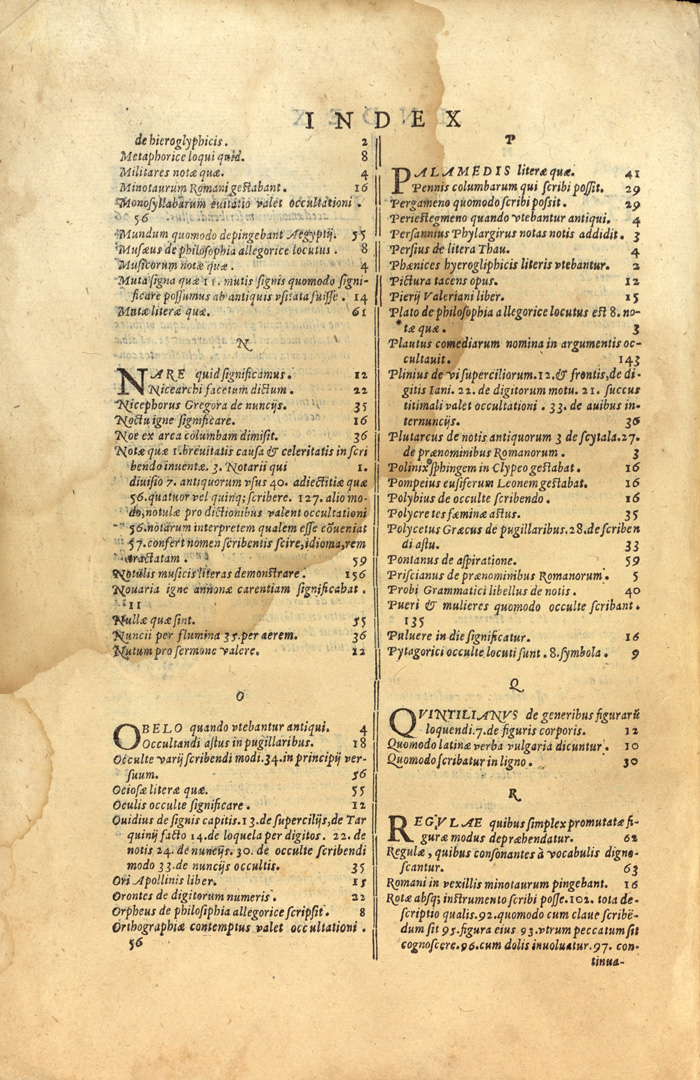 INDEX
de hieroglyphicis. 2
Metaphorice loqui quid. 8
Militares notæ quæ. 4
Minotaurum Romani gestabant. 16
Monosyllabarum euitatio valet occultationi.
56
Mundum quomodo depingebant Aegyptij. 55
Musæus de philosophia allegorice locutus. 8
Musicorum notæ quæ. 4
Muta signa quæ 11. mutis signis quomodo signi-
ficare possumus ab antiquis vsitata fuisse. 14
Mutæ literæ quæ. 61
N
NARE quid significamus. 12
Nicearchi facetum dictum. 22
Nicephorus Gregora de nuncijs. 35
Noctu igne significare. 16
Noe ex arca columbam dimisit. 36
Notæ quæ 1. breuitatis causa & celeritatis in scri
bendo inuentæ. 3. Notarii qui 1.
diuisio 7. antiquorum vsus 40. adiectitiæ quæ
56. quatuor vel quinq; scribere. 127. alio mo-
do, notulæ pro dictionibus valent occultationi
56. notarum interpretem qualem esse cōueniat
57. confert nomen scribentis scire, idioma, rem
tractatam. 59
Notulis musicis literas demonstrare. 156
Nouaria igne annonæ carentiam significabat.
11
Nullæ quæ sint. 55
Nuncii per flumina 35. per aerem. 36
Nutum pro sermone valere. 12
O
OBELO quando vtebantur antiqui. 4
Occultandi astus in pugillaribus. 18
Occulte varij scribendi modi. 34. in principij ver-
suum. 56
Ociosæ literæ quæ. 55
Oculis occulte significare. 12
Ouidius de signis capitis. 13. de supercilijs, de Tar
quinij facto 14. de loquela per digitos. 22. de
notis 24. de nuncijs. 30. de occulte scribendi
modo 33. de nuncijs occultis. 35
Ori Apollinis liber. 15
Orontes de digitorum numeris. 22
Orpheus de philosiphia allegorice scripsit. 8
Orthographiæ contemptus valet occultationi.
56
P
PALAMEDIS literæ quæ. 41
Pennis columbarum qui scribi possit. 29
Pergameno quomodo scribi possit. 29
Periestegmeno quando vtebantur antiqui. 4
Persannius Phylargirus notas notis addidit. 3
Persius de litera Thau. 4
Phænices hyerogliphicis literis vtebantur. 2
Pictura tacens opus. 12
Pierij Valeriani liber. 15
Plato de philosophia allegorice locutus est 8. no-
tæ quæ. 3
Plautus comediarum nomina in argumentis oc-
cultauit. 143
Plinius de vi superciliorum. 12. & frontis, de di-
gitis Iani. 22. de digitorum motu. 21. succus
titimali valet occultationi. 33. de auibus in-
ternuncijs. 36
Plutarcus de notis antiquorum 3 de scytala. 27.
de prænominibus Romanorum. 3
Polinix sphingem in Clypeo gestabat. 16
Pompeius eusiferum Leonem gestabat. 16
Polybius de occulte scribendo. 16
Polycretes fæminæ astus. 35
Polycetus Græcus de pugillaribus. 28. de scriben
di astu. 33
Pontanus de aspiratione. 59
Priscianus de prænominibus Romanorum. 5
Probi Grammatici libellus de notis. 40
Pueri & mulieres quomodo occulte scribant.
135
Puluere in die significatur. 16
Pytagorici occulte locuti sunt. 8. symbola. 9
Q
QVINTILIANVS de generibus figurarū
loquendi. 7. de figuris corporis. 12
Quomodo latinæ verba vulgaria dicuntur. 10
Quomodo scribatur in ligno. 30
R
REGVLAE quibus simplex promutatæ fi-
guræ modus depræhendatur. 62
Regulæ, quibus consonantes à vocabulis digno-
scantur. 63
Romani in vexillis minotaurum pingebant. 16
Rotæ absq; instrumento scribi posse. 102. tota de-
scriptio qualis. 92. quomodo cum claue scribē-
dum sit 95. figura eius 93. vtrum peccatum sit
cognoscere. 96. cum dolis inuoluatur. 97. con-
tinua-